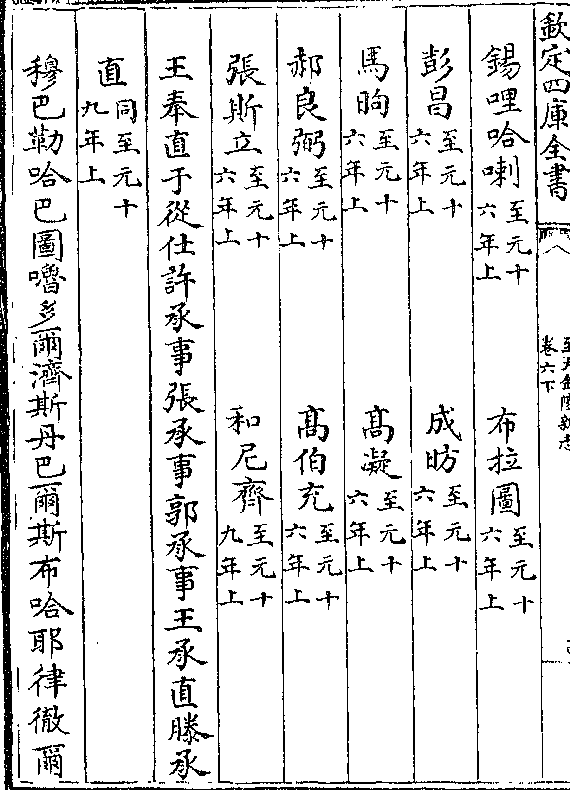 欽定四庫全書
至大金陵新志
卷六下
錫哩哈喇至元十六年上 布拉圖至元十六年上
彭昌至元十六年上 成昉至元十六年上
馬昫至元十六年上 高凝至元十六年上
郝良弼至元十六年上 高伯充至元十六年上
張斯立至元十六年上 和尼齊至元十九年上
王奉直于從仕許承事張承事郭承事王承直滕承
直同至元十九年上
穆巴勒哈巴圖嚕多爾濟斯丹巴爾斯布哈耶律徹爾